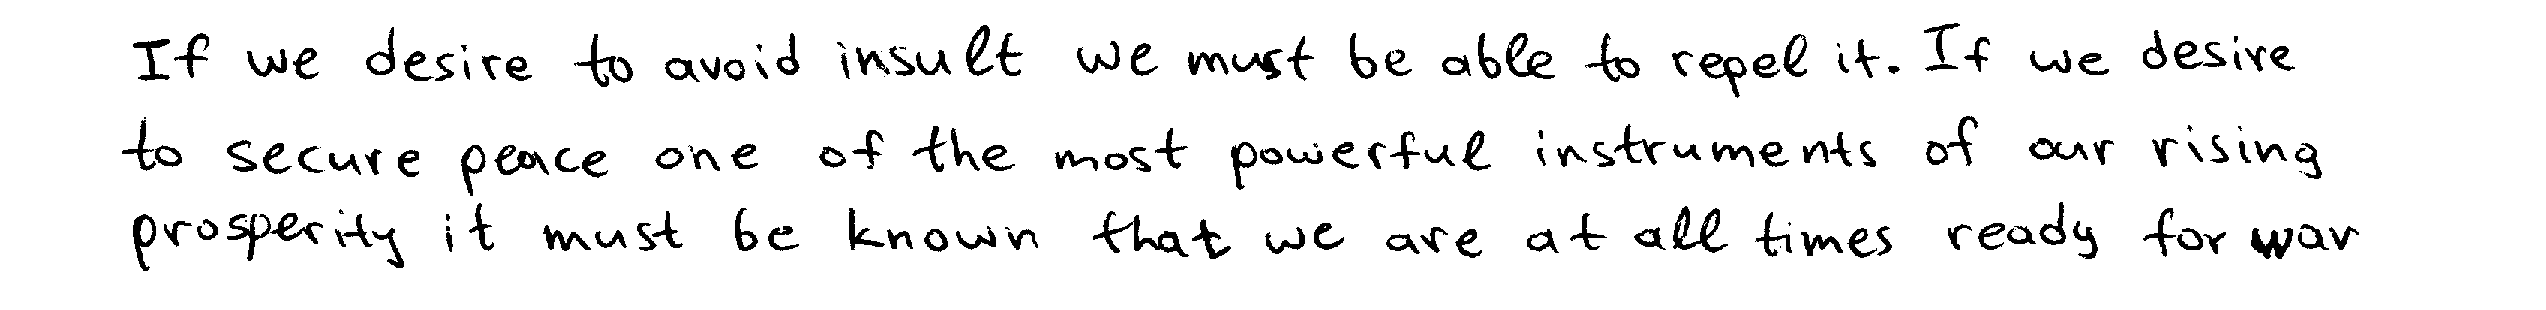 If we desire to avoid insult we must be able to repel it. If we desire
to secure peace one of the most powerful instruments of our rising
prosperity it must be known that we are at all times ready for war